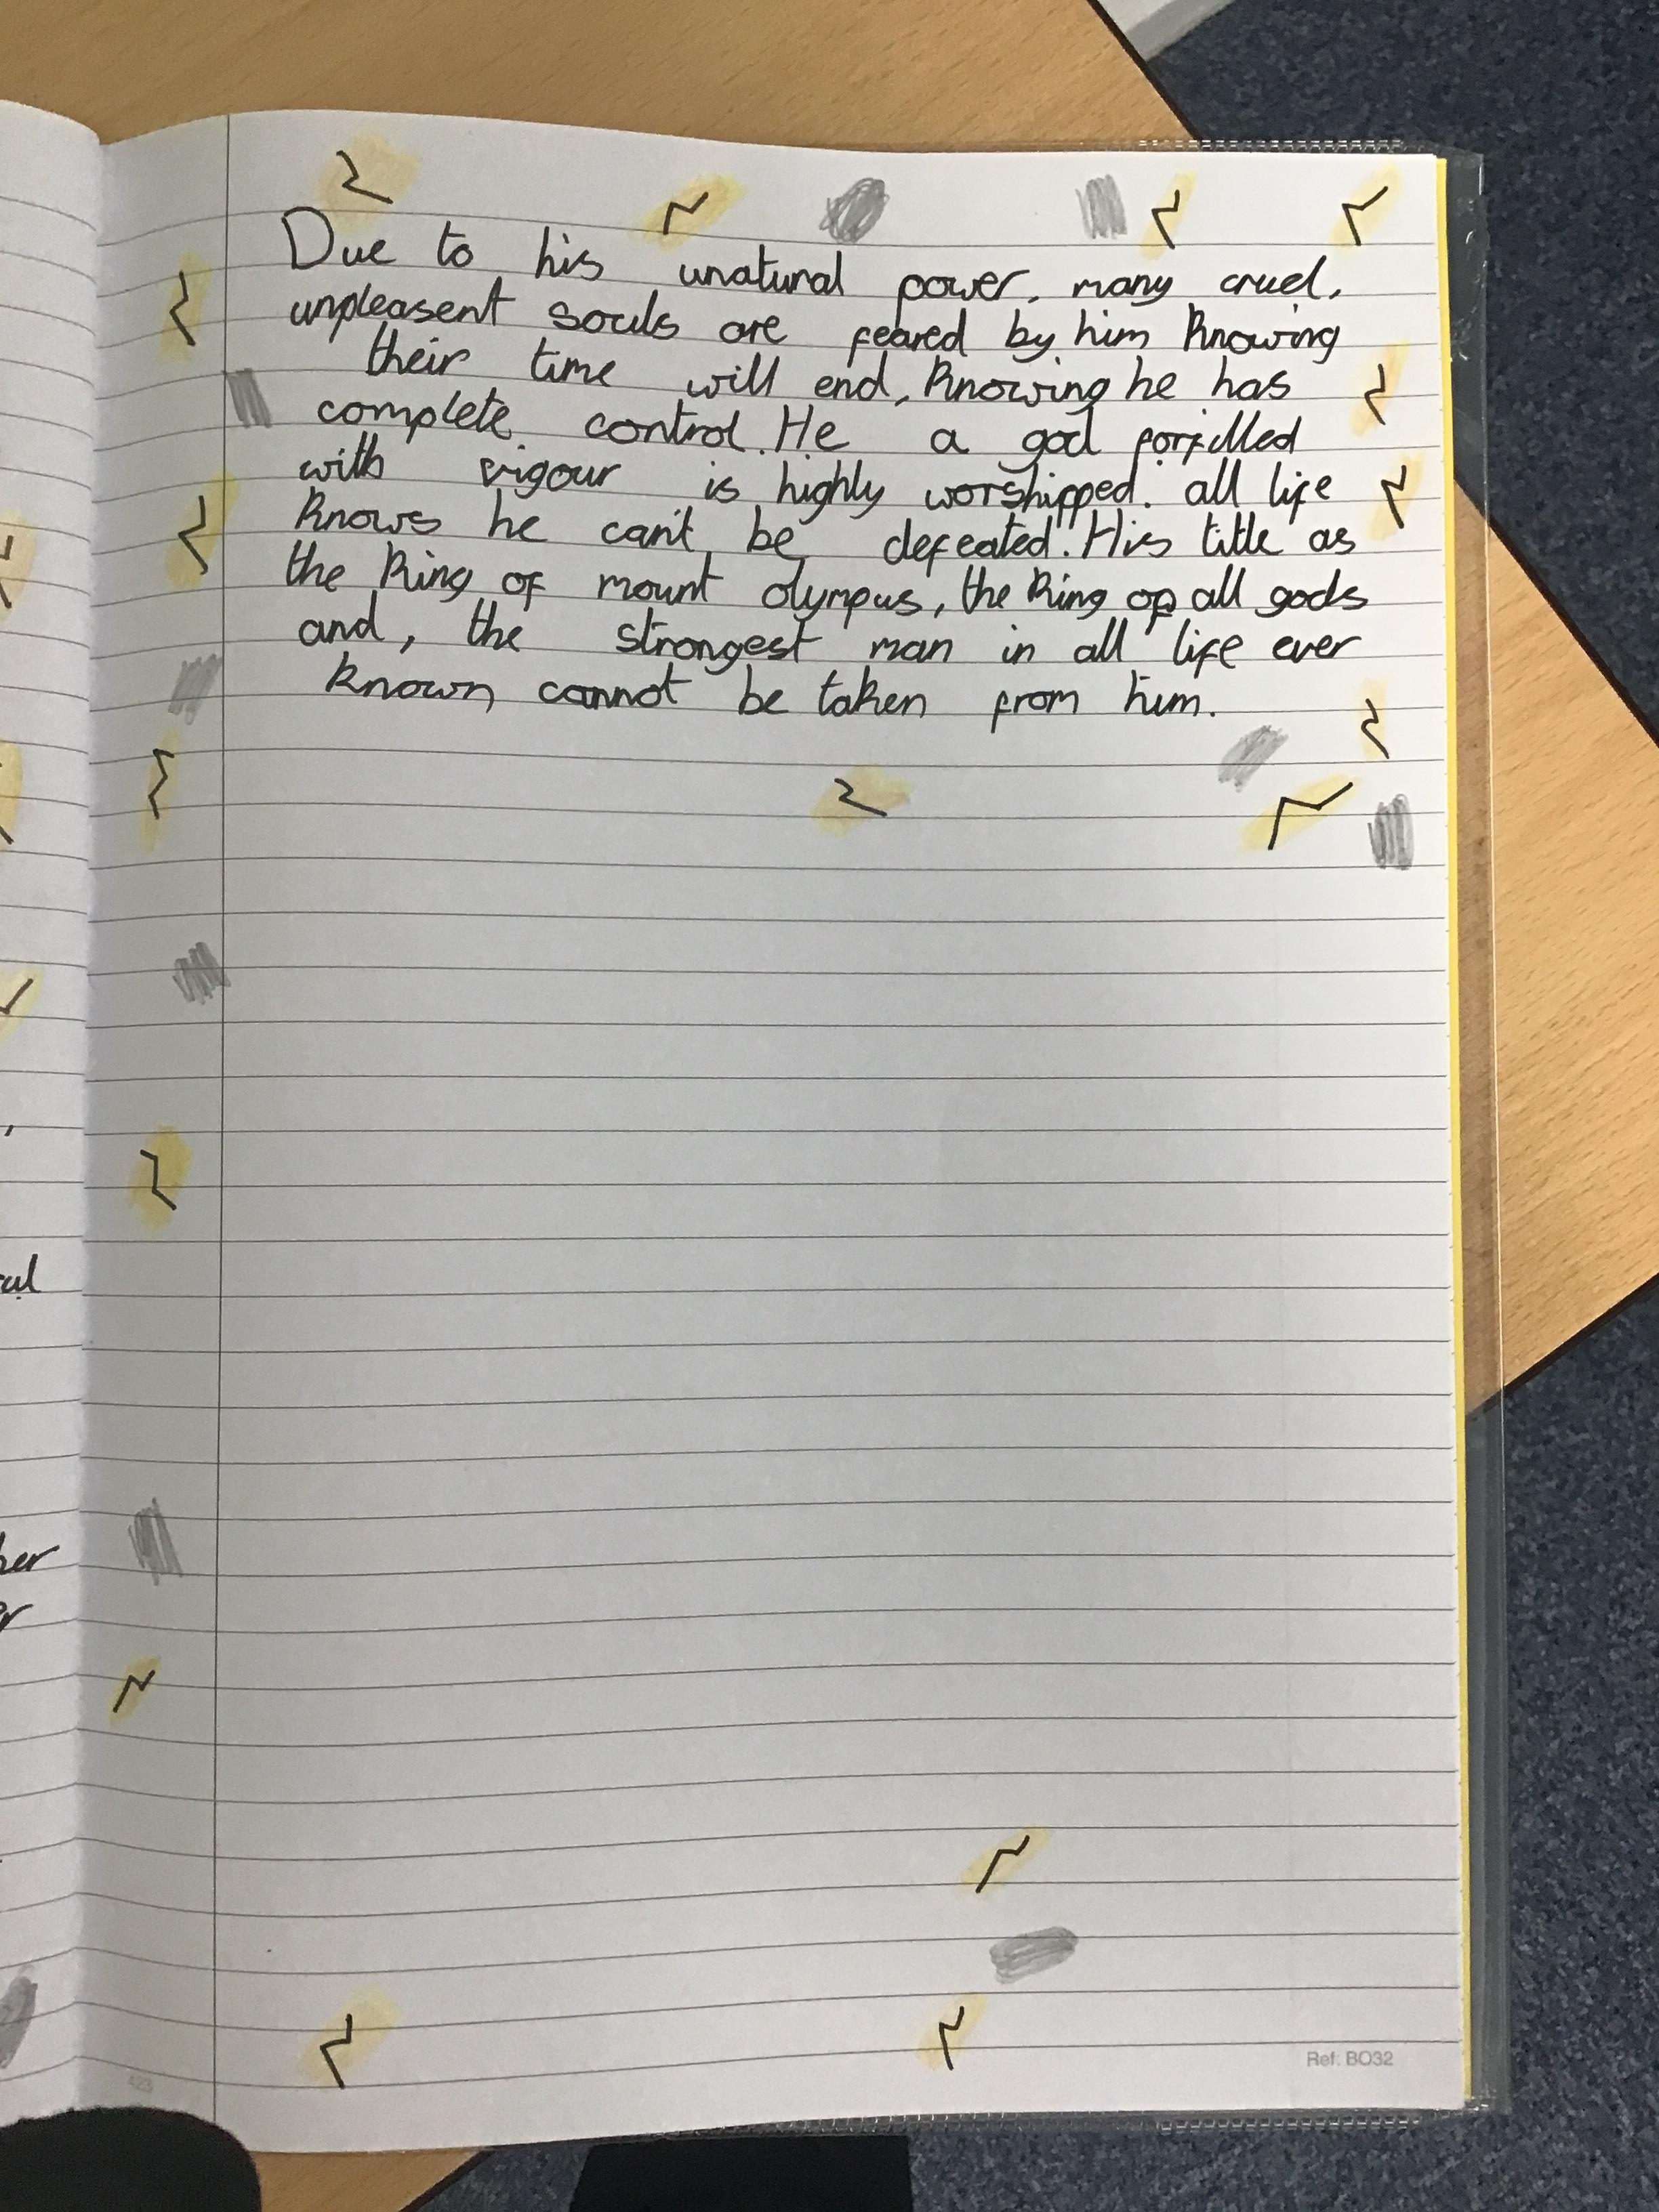 Due to his unatural power, many cruel,
unpleasent souls are feared by him knowing
their time will end, knowing he has
complete control. He a god forfilled
with vigour is highly worshipped. all life
knows he can't be defeated. His title as
the king of mount olympus, the king of all gods
and, the strongest man in all life ever
known, cannot be taken from him.
ul
her
Ref: BO32
423